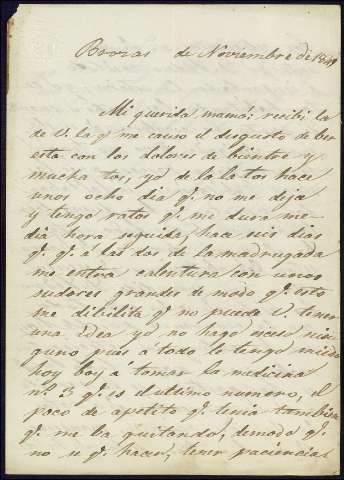 Brozas de Noviembre de 1849
Mi querida mamá: recibi la
de V. la q. me causo el disgusto de ber
esta con los dolores de bientre y
mucha tos, yo de la la tos hace
unos ocho dia q. no me deja
y tengo ratos q. me dura me-
dia hora seguida, hace seis dias
q. q. á las dos de la madrugada
me entra calentura con unos
sudores grandes de modo q. esto
me dibilita q. no puede V. tener
una idea yo no hago nin-
guno pues á todo le tengo miedo
hoy boy a tomar la medicina
n.º 3 q. es el ultimo numero, el
poco de apetito q. tenia tambien
q. me ba quitando, de modo q.
no se q. hacer, tener paciencias